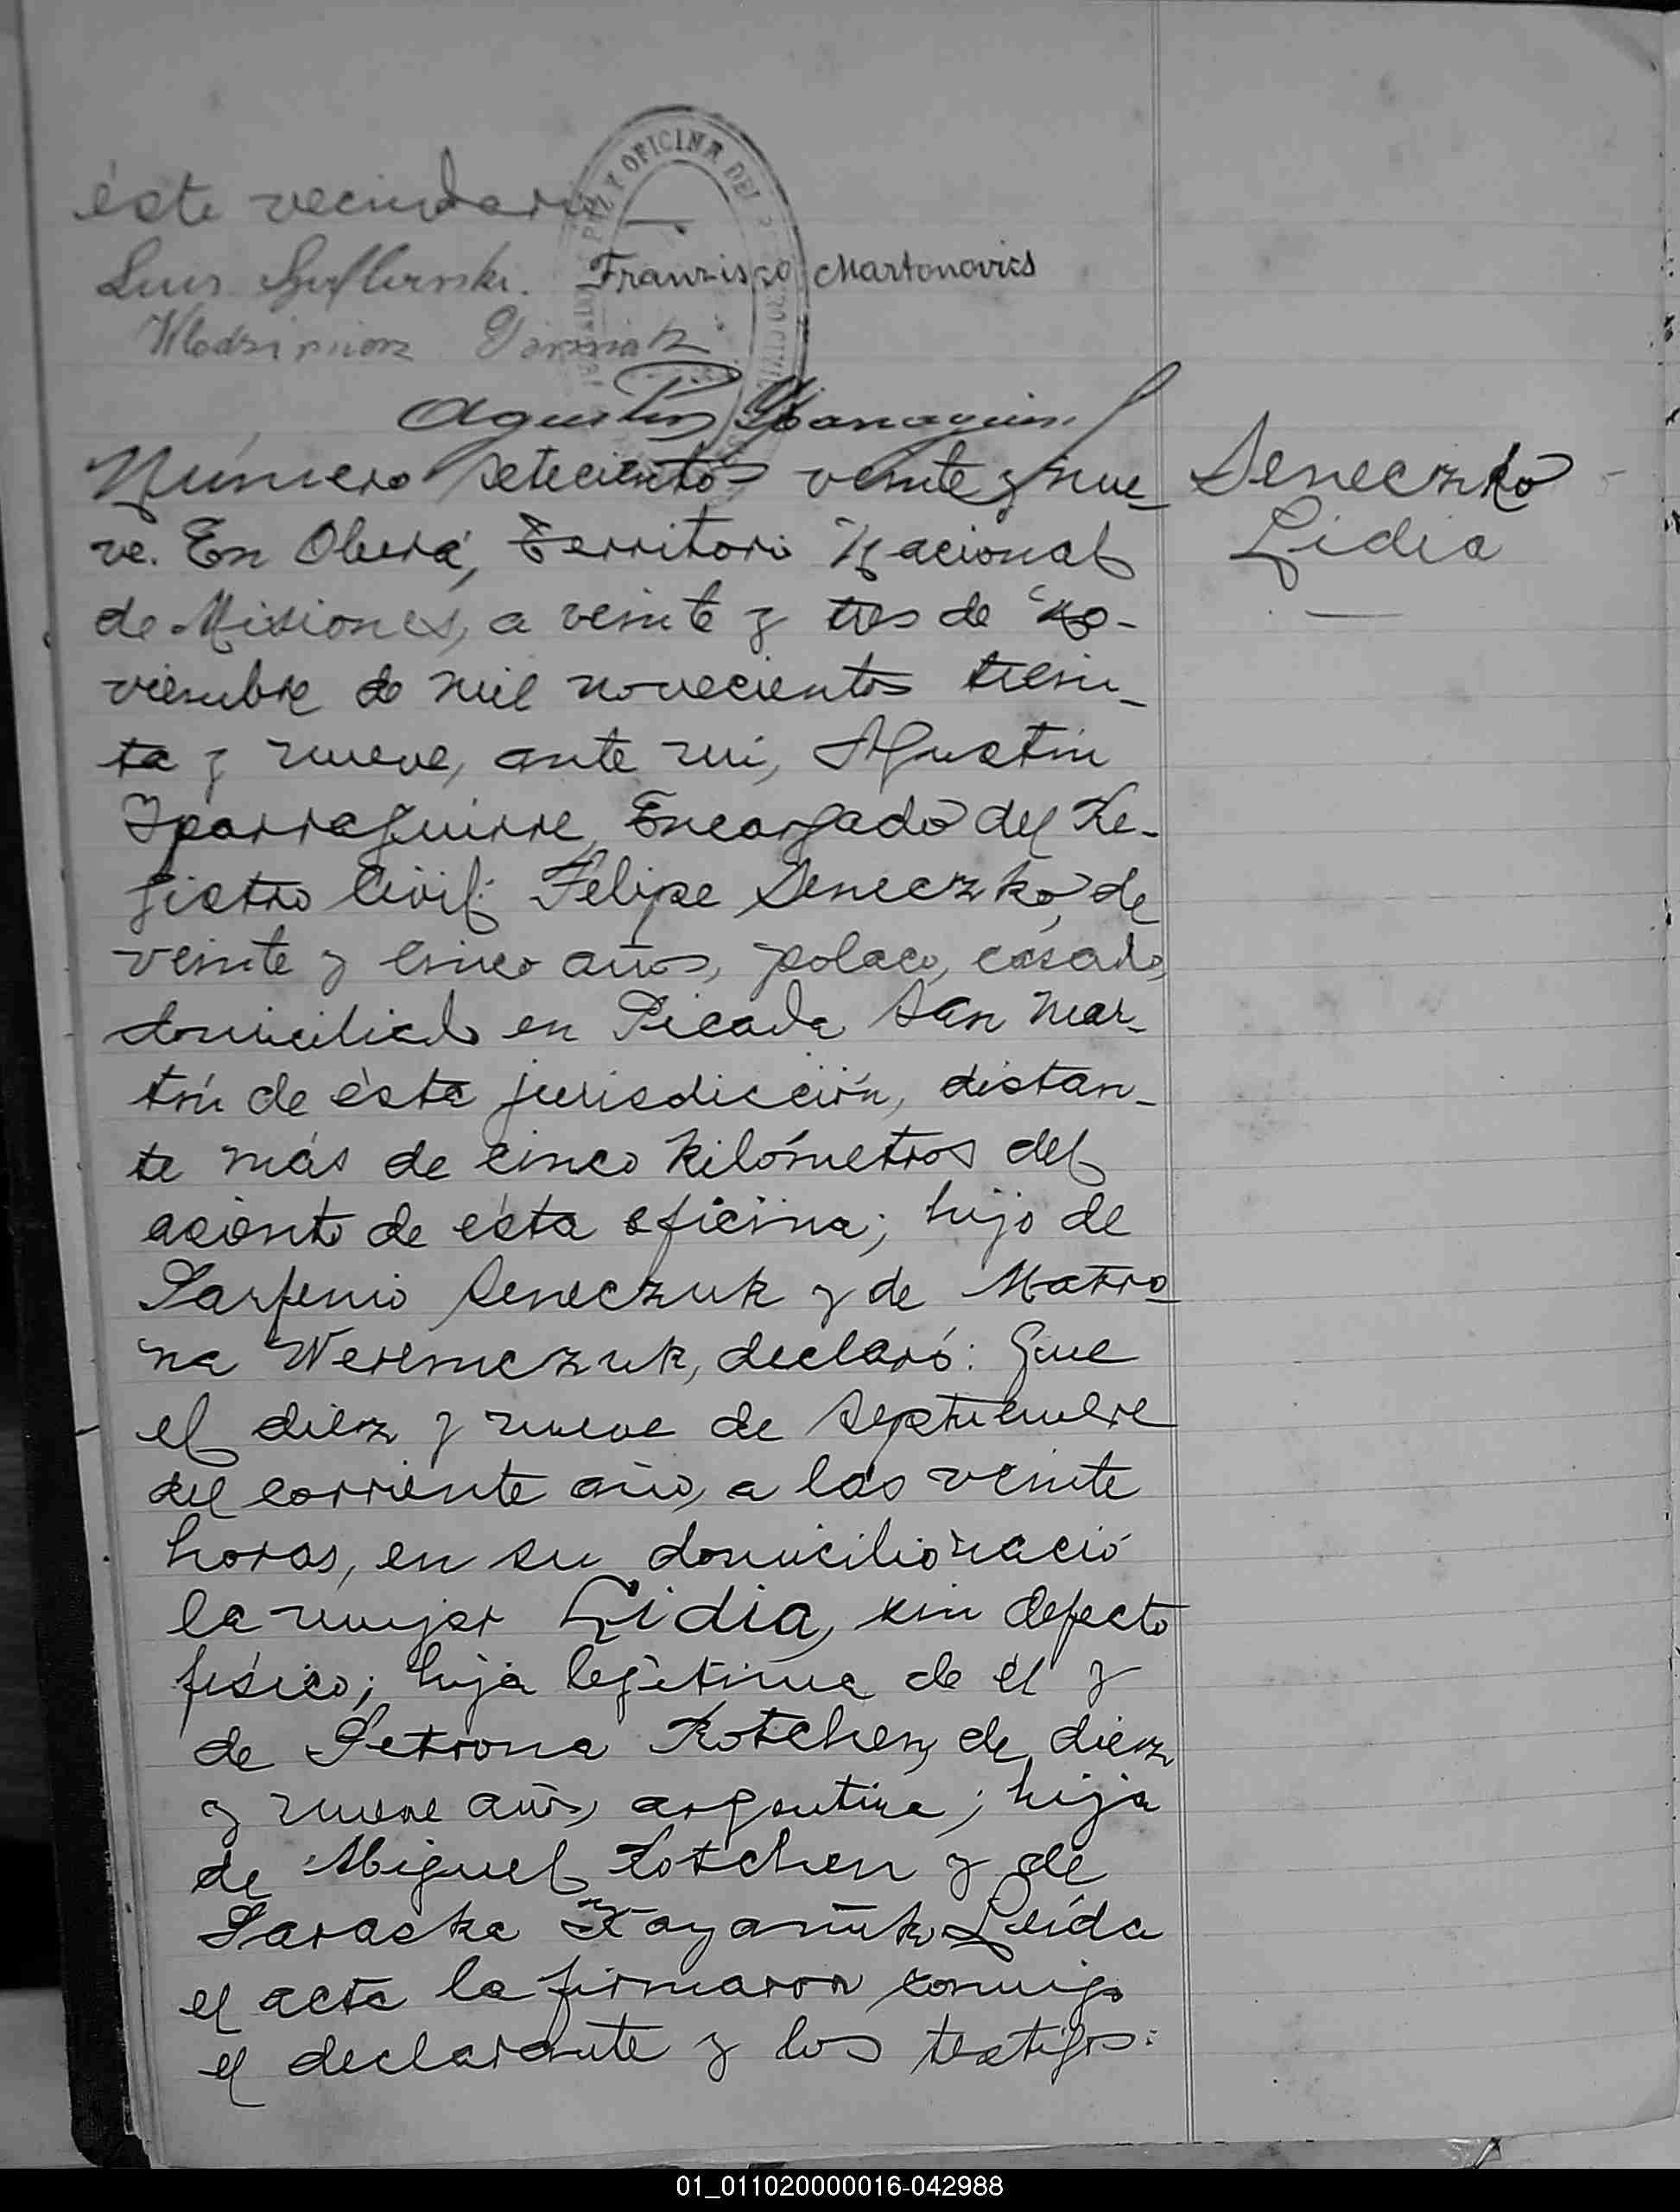 éste vecindario
Luis
Franzisco Martonovics
Agustin Yparraguirre
Número setecientos veinte y nue-
ve. En Oberá, Territorio Nacional
de Misiones, a veinte y tres de no-
viembre de mil novecientos trein-
ta y nueve, ante mi, Agustin
Yparraguirre, Encargado del Re-
gistro Civil: Felipe Seneczko, de
veinte y cinco años, polaco, casado,
domiciliado en Picada San Mar-
tín de ésta jurisdicción, distan-
te más de cinco kilómetros del
asiento de ésta oficina; hijo de
Parfenio Seneczuk y de Matro-
na Weremczuk, declaró: Que
el diez y nueve de septiembre
del corriente año, a las veinte
horas, en su domicilio nació
la mujer Lidia, sin defecto
físico; hija legítima de él y
de Petrona Kotchen, de diez
y nueve años, argentina; hija
de Miguel Kotchen y de
Paraska Leída
el acta la firmaron conmigo
el declarante y los testigos:
Seneczko
Lidia
01_011020000016-042988